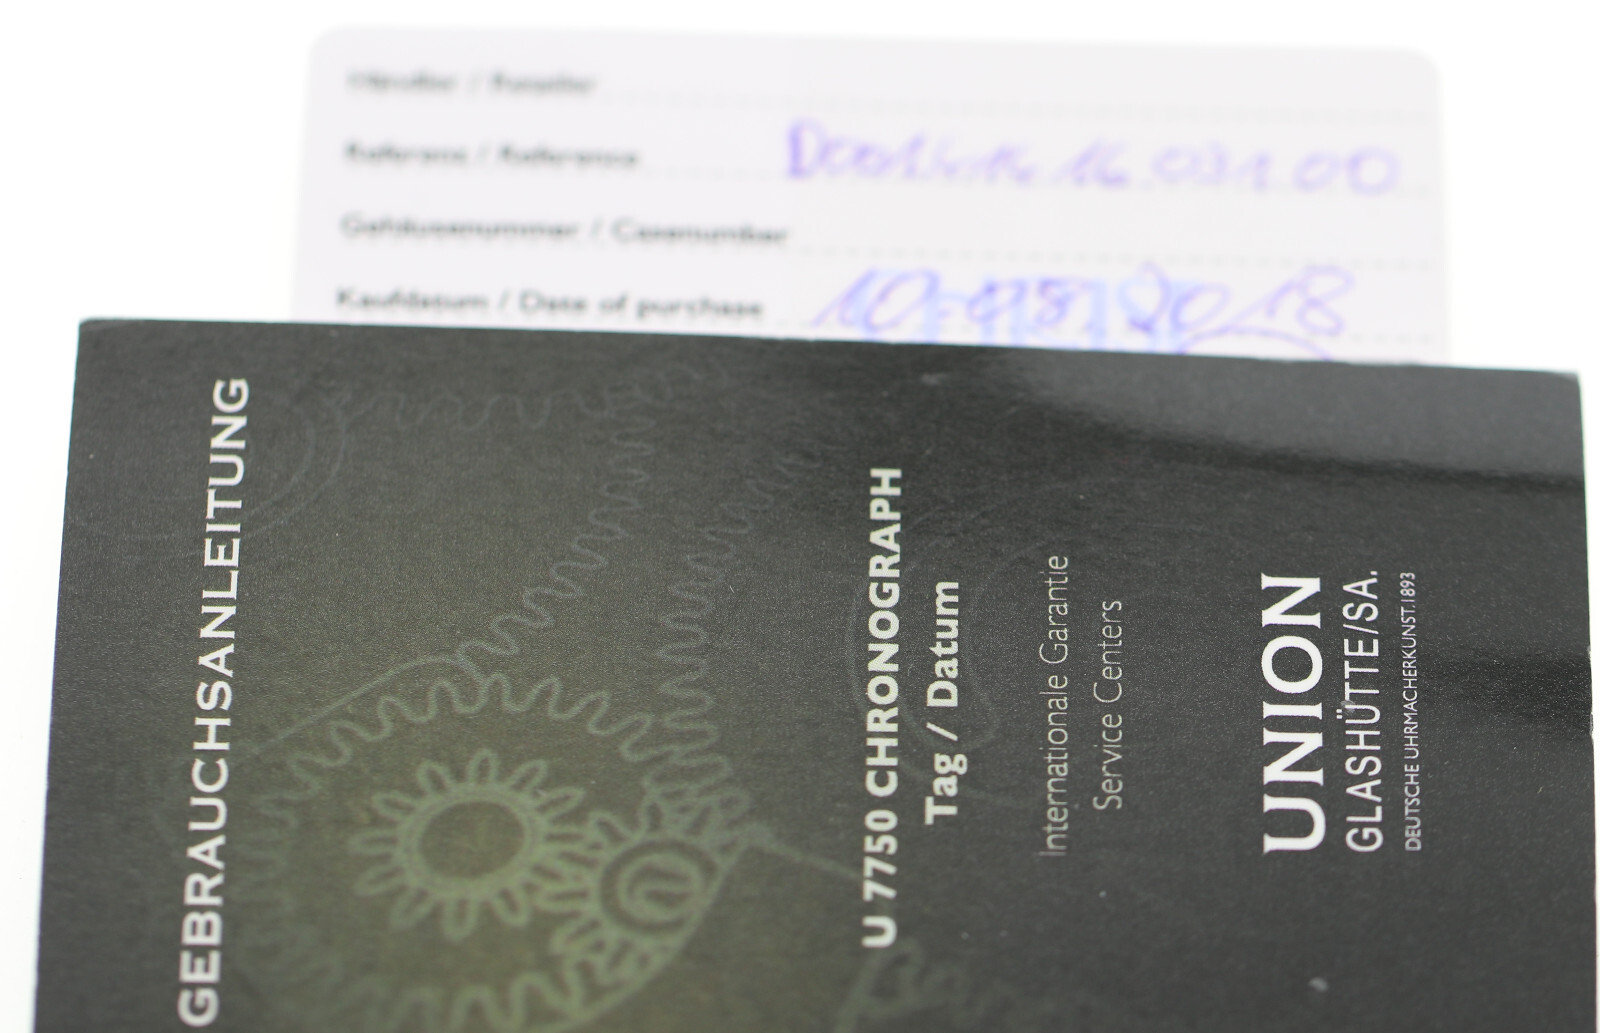 Händler / Reseller
Referenz / Reference
Gehäusenummer / Casenumber
Kaufdatum / Date of purchase 10.08.2018
GEBRAUCHSANLEITUNG
U 7750 CHRONOGRAPH
Tag / Datum
Internationale Garantie
Service Centers
UNION
GLASHÜTTE/SA.
DEUTSCHE UHRMACHERKUNST.1893